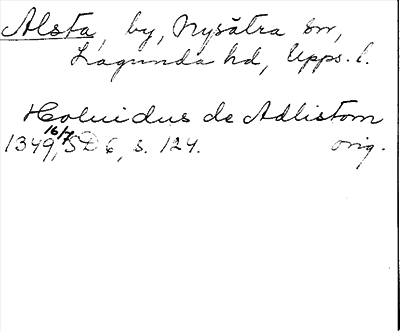 Alsta, by, Nysätra sn,
Lagunda hd, Upps. l.
Holuidus de Adlistom
16/7
1349, SD 6, s. 124. orig.